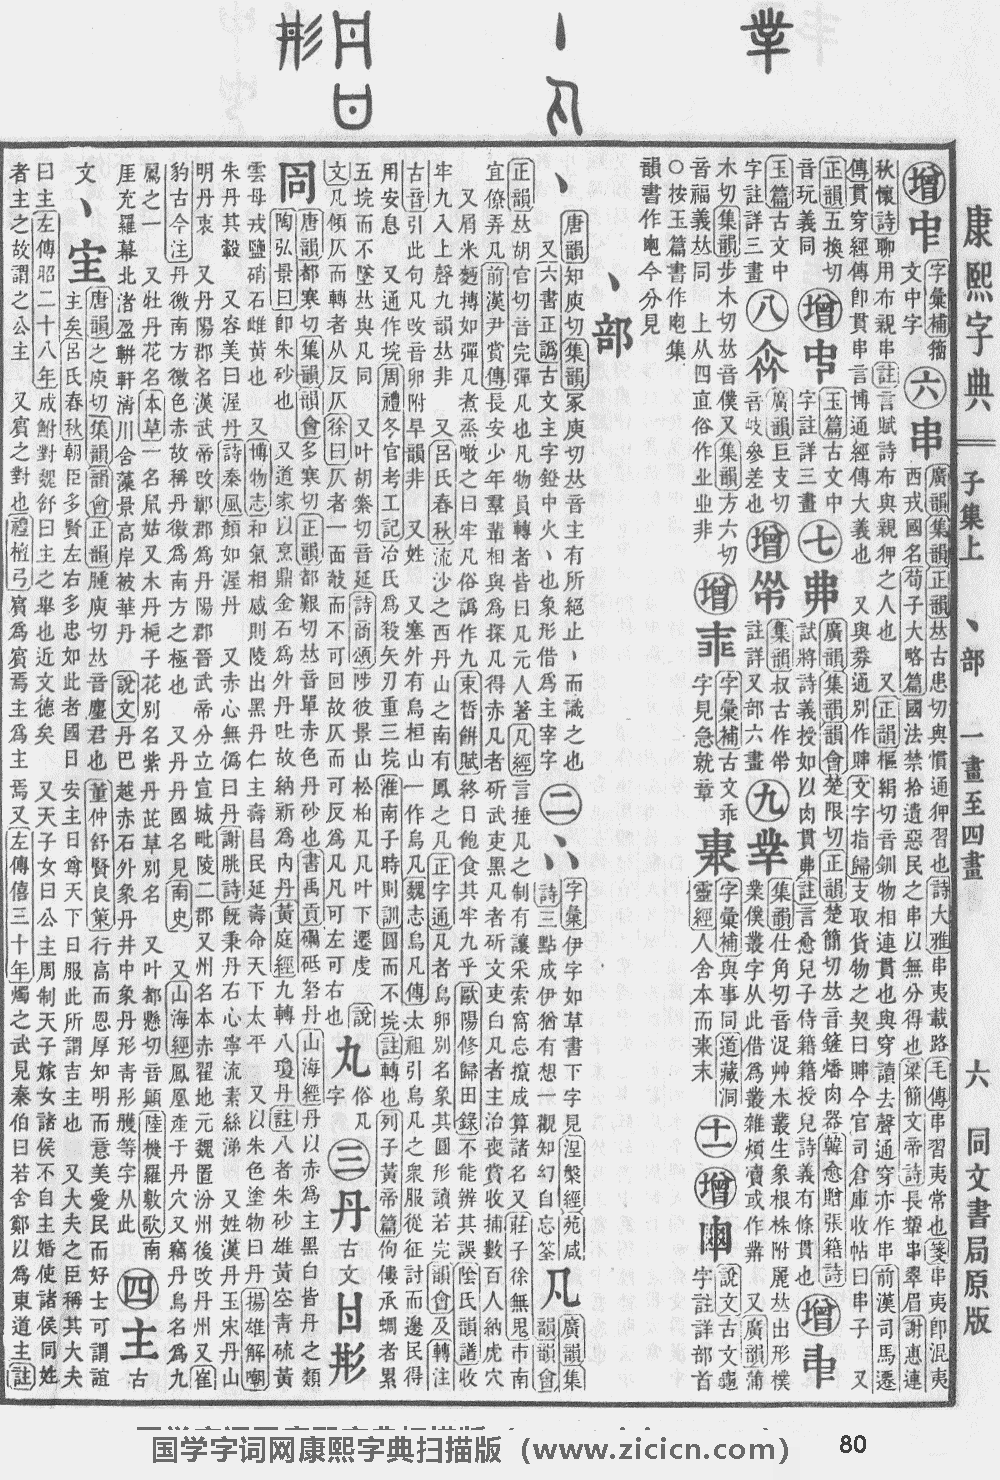 康熙字典
子集上
丶部
一畫至四畫
六
同文書局原版
增 中 字彙補籀
文中字 六 串 廣韻集韻正韻𠀤古患切與慣通狎習也詩大雅串夷載路毛傳串習夷常也箋串夷卽混夷
西戎國名荀子大略篇國法禁拾遺惡民之串以無分得也梁簡文帝詩長顰串翠眉謝惠連
秋懷詩聊用布親串註言賦詩布與親狎之人也 又正韻樞絹切音釧物相連貫也與穿讀去聲通穿亦作串前漢司馬遷
傳貫穿經傳卽貫串言博通經傳大義也 又與通別作賗文字指歸支取貨物之契曰賗今官司倉庫收帖曰串子 又
正韻五換切
音玩義同 增 玉篇古文中
字註詳三畫 七 弗 廣韻集韻韻會楚限切正韻楚簡切𠀤音鏟燔肉器韓愈贈張籍詩
試將詩義授如以肉貫弗註言愈兒子侍籍籍授兒詩義有條貫也 增
玉篇古文中
字註詳三畫 八 廣韻巨支切
音岐參差也 增 集韻叔古作
註詳又部六畫 九 丵 集韻仕角切音浞艸木叢生象根株附麗𠀤出形樸
業僕叢字从此借爲叢雜煩賣或作 又廣韻蒲
木切集韻步木切𠀤音僕又集韻方六切
音福義𠀤同 上从四直俗作业业非 增 字彙補古文乖
字見急就章 字彙補與事同道藏洞
靈經人舍本而末 十一 增 說文古文龜
字註詳部首
○按玉篇書作集
韻書作今分見
丶部
丶 唐韻知庾切集韻冢庾切𠀤音主有所絕止丶而識之也
又六書正譌古文主字鐙中火丶也象形借爲主宰字 二 字彙伊字如草書下字見涅槃經苑咸
詩三點成伊猶有想一觀知幻自忘筌 凡 廣韻集
韻韻會
正韻𠀤胡官切音完彈凡也凡物員轉者皆曰凡元人著凡經言捶凡之制有讓采索窩忘攛成算諸名又莊子徐無鬼市南
宜僚弄凡前漢尹賞傳長安少年羣輩相與爲探凡得赤凡者斫武吏黑凡者斫文吏白凡者主治喪賞收捕數百人納虎穴
又屑米麪摶如彈凡煮烝啖之曰牢凡俗譌作九束晳餠賦終日飽食其牢九乎歐陽修歸田錄不能辨其誤陰氏韻譜收
牢九入上聲九韻𠀤非 又呂氏春秋流沙之西丹山之南有鳳之凡正字通凡者鳥卵別名象其圓形讀若完韻會及轉注
古音引此句凡改音卵附早韻非 又姓 又塞外有烏桓山一作烏凡魏志烏凡傳太祖引烏凡之衆服從征討而邊民得
用安息 又通作垸周禮冬官考工記冶氏爲殺矢刃重三垸淮南子時則訓圜而不垸註轉也列子黃帝篇佝僂承蜩者累
五垸而不墜𠀤與凡同 又叶胡縈切音延詩商頌陟彼景山松柏凡凡叶下遷虔 說
文凡傾仄而轉者从反仄徐曰仄者一面攲而不可回故仄而可反爲凡凡可左可右也 丸 俗凡
字 三 丹 古文
唐韻都寒切集韻韻會多寒切正韻都艱切𠀤音單赤色丹砂也書禹貢礪砥砮丹山海經丹以赤爲主黑白皆丹之類
陶弘景曰卽朱砂也 又道家以烹鼎金石爲外丹吐故納新爲內丹黃庭經九轉八瓊丹註八者朱砂雄黃空青硫黃
雲母戎鹽硝石雌黃也 又博物志和氣相感則陵出黑丹仁主壽昌民延壽命天下太平 又以朱色塗物曰丹揚雄解嘲
朱丹其轂 又容美曰渥丹詩秦風顏如渥丹 又赤心無僞曰丹謝朓詩旣秉丹石心寧流素絲涕 又姓漢丹玉宋丹山
明丹衷 又丹陽郡名漢武帝改鄣郡爲丹陽郡晉武帝分立宣城毗陵二郡又州名本赤翟地元魏置汾州後改丹州又崔
豹古今注丹徼南方徼色赤故稱丹徼爲南方之極也 又丹丹國名見南史 又山海經鳳凰產于丹穴又竊丹鳥名爲九
鳸之一 又牡丹花名本草一名鼠姑又木丹梔子花別名紫丹茈草別名 又叶都懸切音顚陸機羅敷歌南
崖充羅幕北渚盈軿軒淸川含藻景高岸被華丹 說文丹巴越赤石外象丹井中象丹形靑彤雘等字从此 四 主 古
文丶 唐韻之庾切集韻韻會正韻腫庾切𠀤音麈君也董仲舒賢良策行高而恩厚知明而意美愛民而好士可謂誼
主矣呂氏春秋朝臣多賢左右多忠如此者國日安主日尊天下日服此所謂吉主也 又大夫之臣稱其大夫
曰主左傳昭二十八年成鱄對魏舒曰主之舉也近文德矣 又天子女曰公主周制天子嫁女諸侯不自主婚使諸侯同姓
者主之故謂之公主 又賓之對也禮檀弓賓爲賓焉主爲主焉又左傳僖三十年燭之武見秦伯曰若舍鄭以爲東道主註
国学字词网康熙字典扫描版（www.zicicn.com） 80